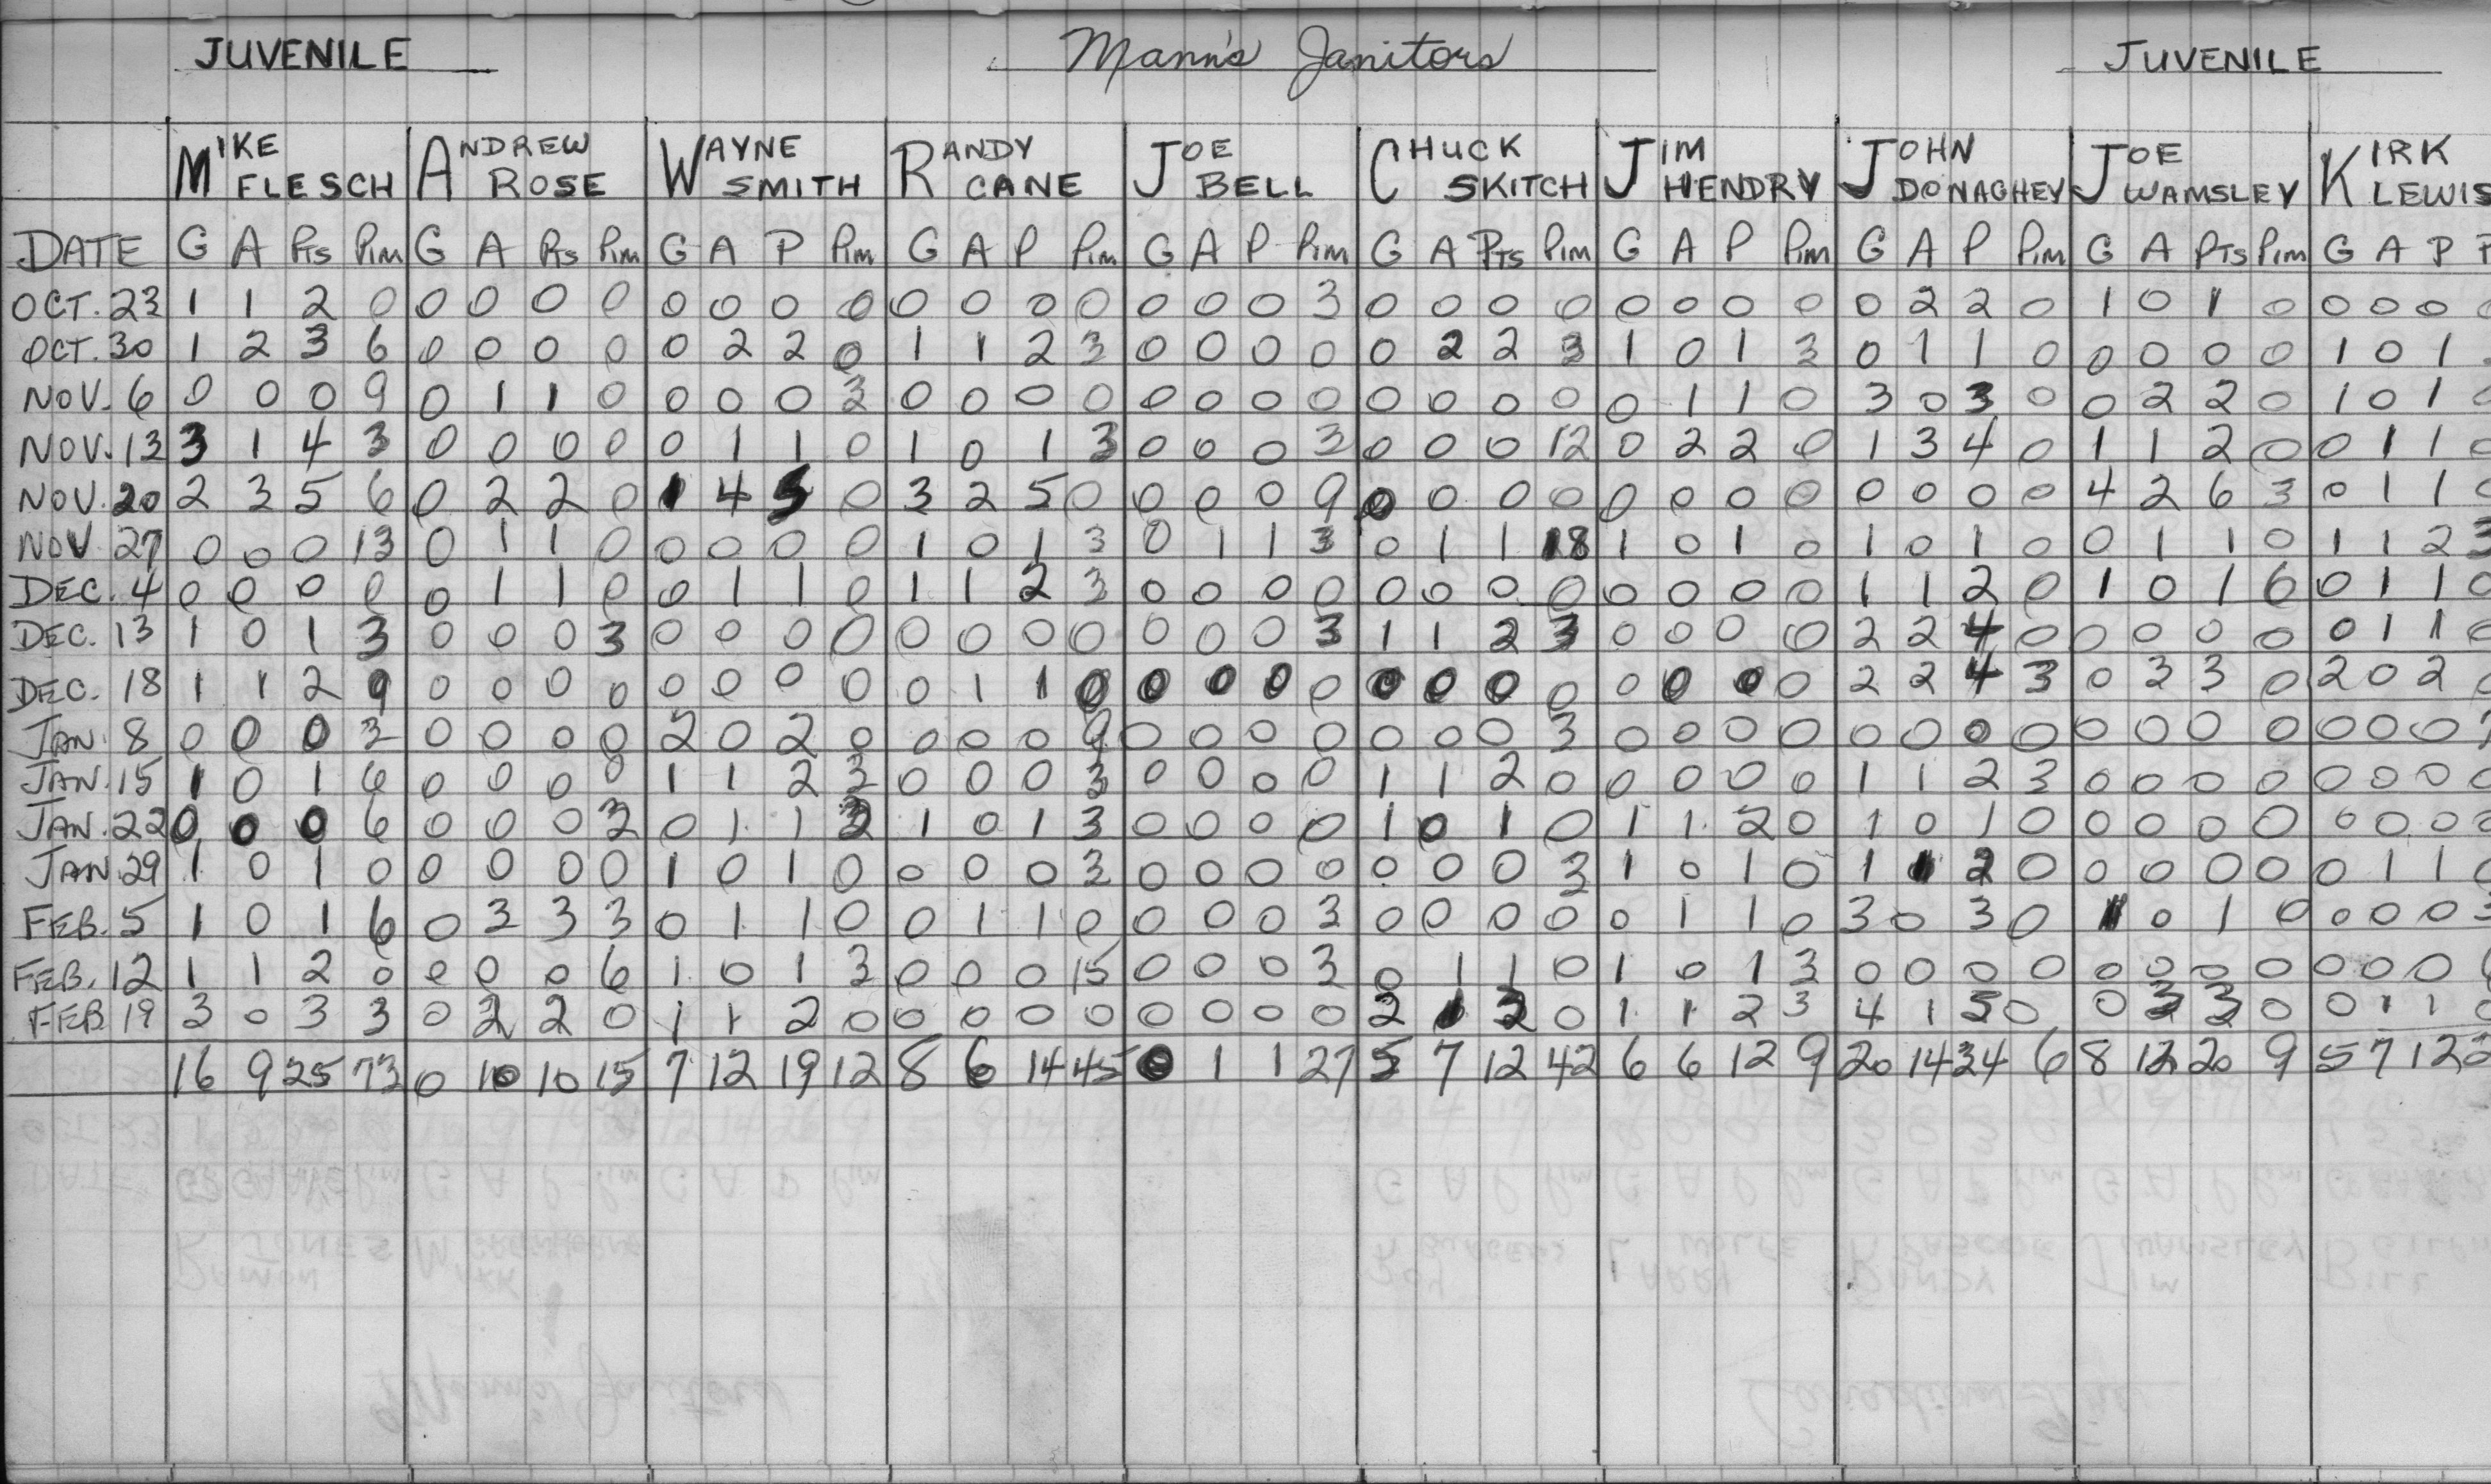 JUVENILE Mann's Janitors JUVENILE
MIKE ANDREW WAYNE RANDY JOE CHUCK JIM JOHN JOE KIRK
FLESCH ROSE SMITH CANE BELL SKITCH HENDRY DONAGHEY WAMSLEY LEWIS
DATE G A Pts Pim G A Pts Pim G A P Pim G A P Pim G A P Pim G A PTs Pim G A P Pim G A P Pim G A PTs Pim G A P
OCT. 23 1 1 2 0 0 0 0 0 0 0 0 0 0 0 0 0 0 0 0 3 0 0 0 0 0 0 0 0 0 2 2 0 1 0 1 0 0 0 0
OCT. 30 1 2 3 6 0 0 0 0 0 2 2 0 1 1 2 3 0 0 0 0 0 2 2 3 1 0 1 3 0 1 1 0 0 0 0 0 1 0 1
NOV. 6 0 0 0 9 0 1 1 0 0 0 0 3 0 0 0 0 0 0 0 0 0 0 0 0 0 1 1 0 3 0 3 0 0 2 2 0 1 0 1
NOV. 13 3 1 4 3 0 0 0 0 0 1 1 0 1 0 1 3 0 0 0 3 0 0 0 12 0 2 2 0 1 3 4 0 1 1 2 0 0 1 1
NOV. 20 2 3 5 6 0 2 2 0 1 4 5 0 3 2 5 0 0 0 0 9 0 0 0 0 0 0 0 0 0 0 0 0 4 2 6 3 0 1 1
NOV 27 0 0 0 13 0 1 1 0 0 0 0 0 1 0 1 3 0 1 1 3 0 1 1 18 1 0 1 0 1 0 1 0 0 1 1 0 1 1 2 3
DEC. 4 0 0 0 0 0 1 1 0 0 1 1 0 1 1 2 3 0 0 0 0 0 0 0 0 0 0 0 0 1 1 2 0 1 0 1 6 0 1 1 0
DEC. 13 1 0 1 3 0 0 0 3 0 0 0 0 0 0 0 0 0 0 0 3 1 1 2 3 0 0 0 0 2 2 4 0 0 0 0 0 0 1 1
DEC. 18 1 1 2 9 0 0 0 0 0 0 0 0 0 1 1 0 0 0 0 0 0 0 0 0 0 0 0 0 2 2 4 3 0 3 3 0 2 0 2
JAN. 8 0 0 0 3 0 0 0 0 2 0 2 0 0 0 0 9 0 0 0 0 0 0 0 3 0 0 0 0 0 0 0 0 0 0 0 0 0 0 0
JAN. 15 1 0 1 6 0 0 0 0 1 1 2 3 0 0 0 3 0 0 0 0 1 1 2 0 0 0 0 0 1 1 2 3 0 0 0 0 0 0 0
JAN. 22 0 0 0 6 0 0 0 3 0 1 1 3 1 0 1 3 0 0 0 0 1 0 1 0 1 1 2 0 1 0 1 0 0 0 0 0 0 0 0
JAN. 29 1 0 1 0 0 0 0 0 1 0 1 0 0 0 0 3 0 0 0 0 0 0 0 3 1 0 1 0 1 1 2 0 0 0 0 0 0 1 1
FEB. 5 1 0 1 6 0 3 3 3 0 1 1 0 0 1 1 0 0 0 0 3 0 0 0 0 0 1 1 0 3 0 3 0 1 0 1 0 0 0 0
FEB. 12 1 1 2 0 0 0 0 6 1 0 1 3 0 0 0 15 0 0 0 3 0 1 1 0 1 0 1 3 0 0 0 0 0 0 0 0 0 0 0
FEB 19 3 0 3 3 0 2 2 0 1 1 2 0 0 0 0 0 0 0 0 0 2 1 3 0 1 1 2 3 4 1 5 0 0 3 3 0 0 1 1
16 9 25 73 0 10 10 15 7 12 19 12 8 6 14 45 0 1 1 27 5 7 12 42 6 6 12 9 20 14 34 6 8 12 20 9 5 7 12